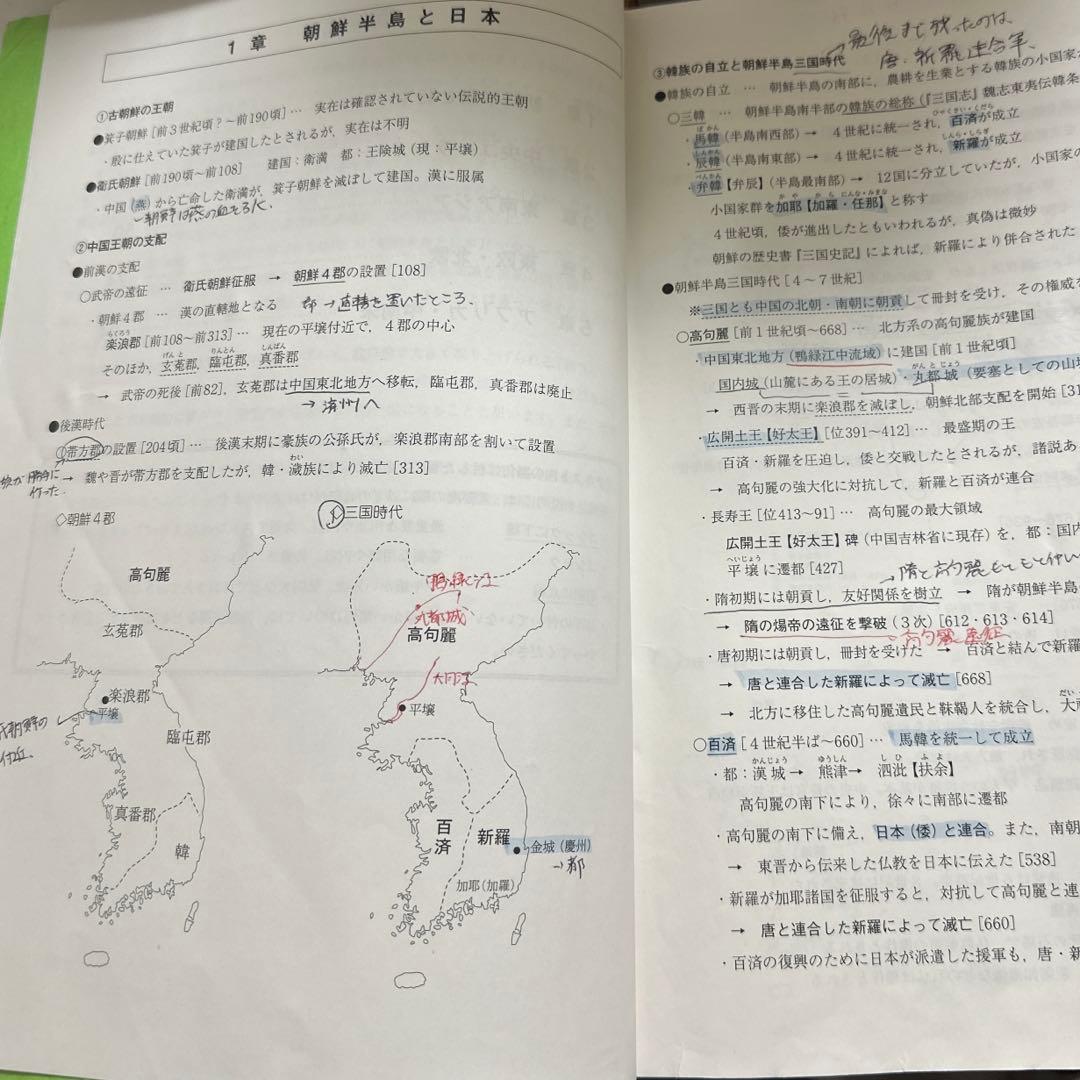 1章 朝鮮半島と日本
①古朝鮮の王朝
●箕子朝鮮[前3世紀頃?~前190頃]… 実在は確認されていない伝説的王朝
・殷に仕えていた箕子が建国したとされるが,実在は不明
●衛氏朝鮮[前190頃~前108] 建国:衛満 都:王険城(現:平壌)
・中国(燕)から亡命した衛満が,箕子朝鮮を滅ぼして建国。漢に服属
②中国王朝の支配
●前漢の支配
○武帝の遠征 … 衛氏朝鮮征服 → 朝鮮4郡の設置[108]
・朝鮮4郡 … 漢の直轄地となる
らくろう
楽浪郡[前108~前313]… 現在の平壌付近で,4郡の中心
げんと りんとん しんばん
そのほか,玄菟郡,臨屯郡,真番郡
→ 武帝の死後[前82],玄菟郡は中国東北地方へ移転,臨屯郡,真番郡は廃止
→満州へ
●後漢時代
○帯方郡の設置[204頃]… 後漢末期に豪族の公孫氏が,楽浪郡南部を割いて設置
わい
→ 魏や晋が帯方郡を支配したが,韓・濊族により滅亡[313]
◇朝鮮4郡
高句麗
玄菟郡
楽浪郡
平壌
臨屯郡
真番郡
韓
◇三国時代
鴨緑江
丸都城
高句麗
大同江
平壌
百済
新羅
金城(慶州)
→都
加耶(加羅)
最後まで残ったのは
唐・新羅連合軍
③韓族の自立と朝鮮半島三国時代
●韓族の自立 … 朝鮮半島の南部に,農耕を生業とする韓族の小国家
○三韓 … 朝鮮半島南半部の韓族の総称(『三国志』魏志東夷伝韓条
ばかん ひゃくさい・くだら
・馬韓(半島南西部)→ 4世紀に統一され,百済が成立
しんかん しんら・しらぎ
・辰韓(半島南東部)→ 4世紀に統一され,新羅が成立
べんかん
・弁韓【弁辰】(半島最南部)→ 12国に分立していたが,小国家の
かや から にんな・みまな
小国家群を加耶【加羅・任那】と称す
4世紀頃,倭が進出したともいわれるが,真偽は微妙
朝鮮の歴史書『三国史記』によれば,新羅により併合された
●朝鮮半島三国時代[4~7世紀]
※三国とも中国の北朝・南朝に朝貢して冊封を受け,その権威を
○高句麗[前1世紀頃~668]… 北方系の高句麗族が建国
・中国東北地方(鴨緑江中流域)に建国[前1世紀頃]
がんとじょう
国内城(山麓にある王の居城)・丸都城(要塞としての山
→ 西晋の末期に楽浪郡を滅ぼし,朝鮮北部支配を開始[31
・広開土王【好太王】[位391~412]… 最盛期の王
百済・新羅を圧迫し,倭と交戦したとされるが,諸説あ
→ 高句麗の強大化に対抗して,新羅と百済が連合
・長寿王[位413~91]… 高句麗の最大領域
広開土王【好太王】碑(中国吉林省に現存)を,都:国内
へいじょう
平壌に遷都[427]
・隋初期には朝貢し,友好関係を樹立 → 隋が朝鮮半島
→ 隋の煬帝の遠征を撃破(3次)[612・613・614]
高句麗遠征
・唐初期には朝貢し,冊封を受けた → 百済と結んで新羅
→ 唐と連合した新羅によって滅亡[668]
だい
→ 北方に移住した高句麗遺民と靺鞨人を統合し,大
○百済[4世紀半ば~660]… 馬韓を統一して成立
かんじょう ゆうしん しひ ふよ
・都:漢城→ 熊津→ 泗沘【扶余】
高句麗の南下により,徐々に南部に遷都
・高句麗の南下に備え,日本(倭)と連合。また,南朝
→ 東晋から伝来した仏教を日本に伝えた[538]
・新羅が加耶諸国を征服すると,対抗して高句麗と連
→ 唐と連合した新羅によって滅亡[660]
・百済の復興のために日本が派遣した援軍も,唐・新